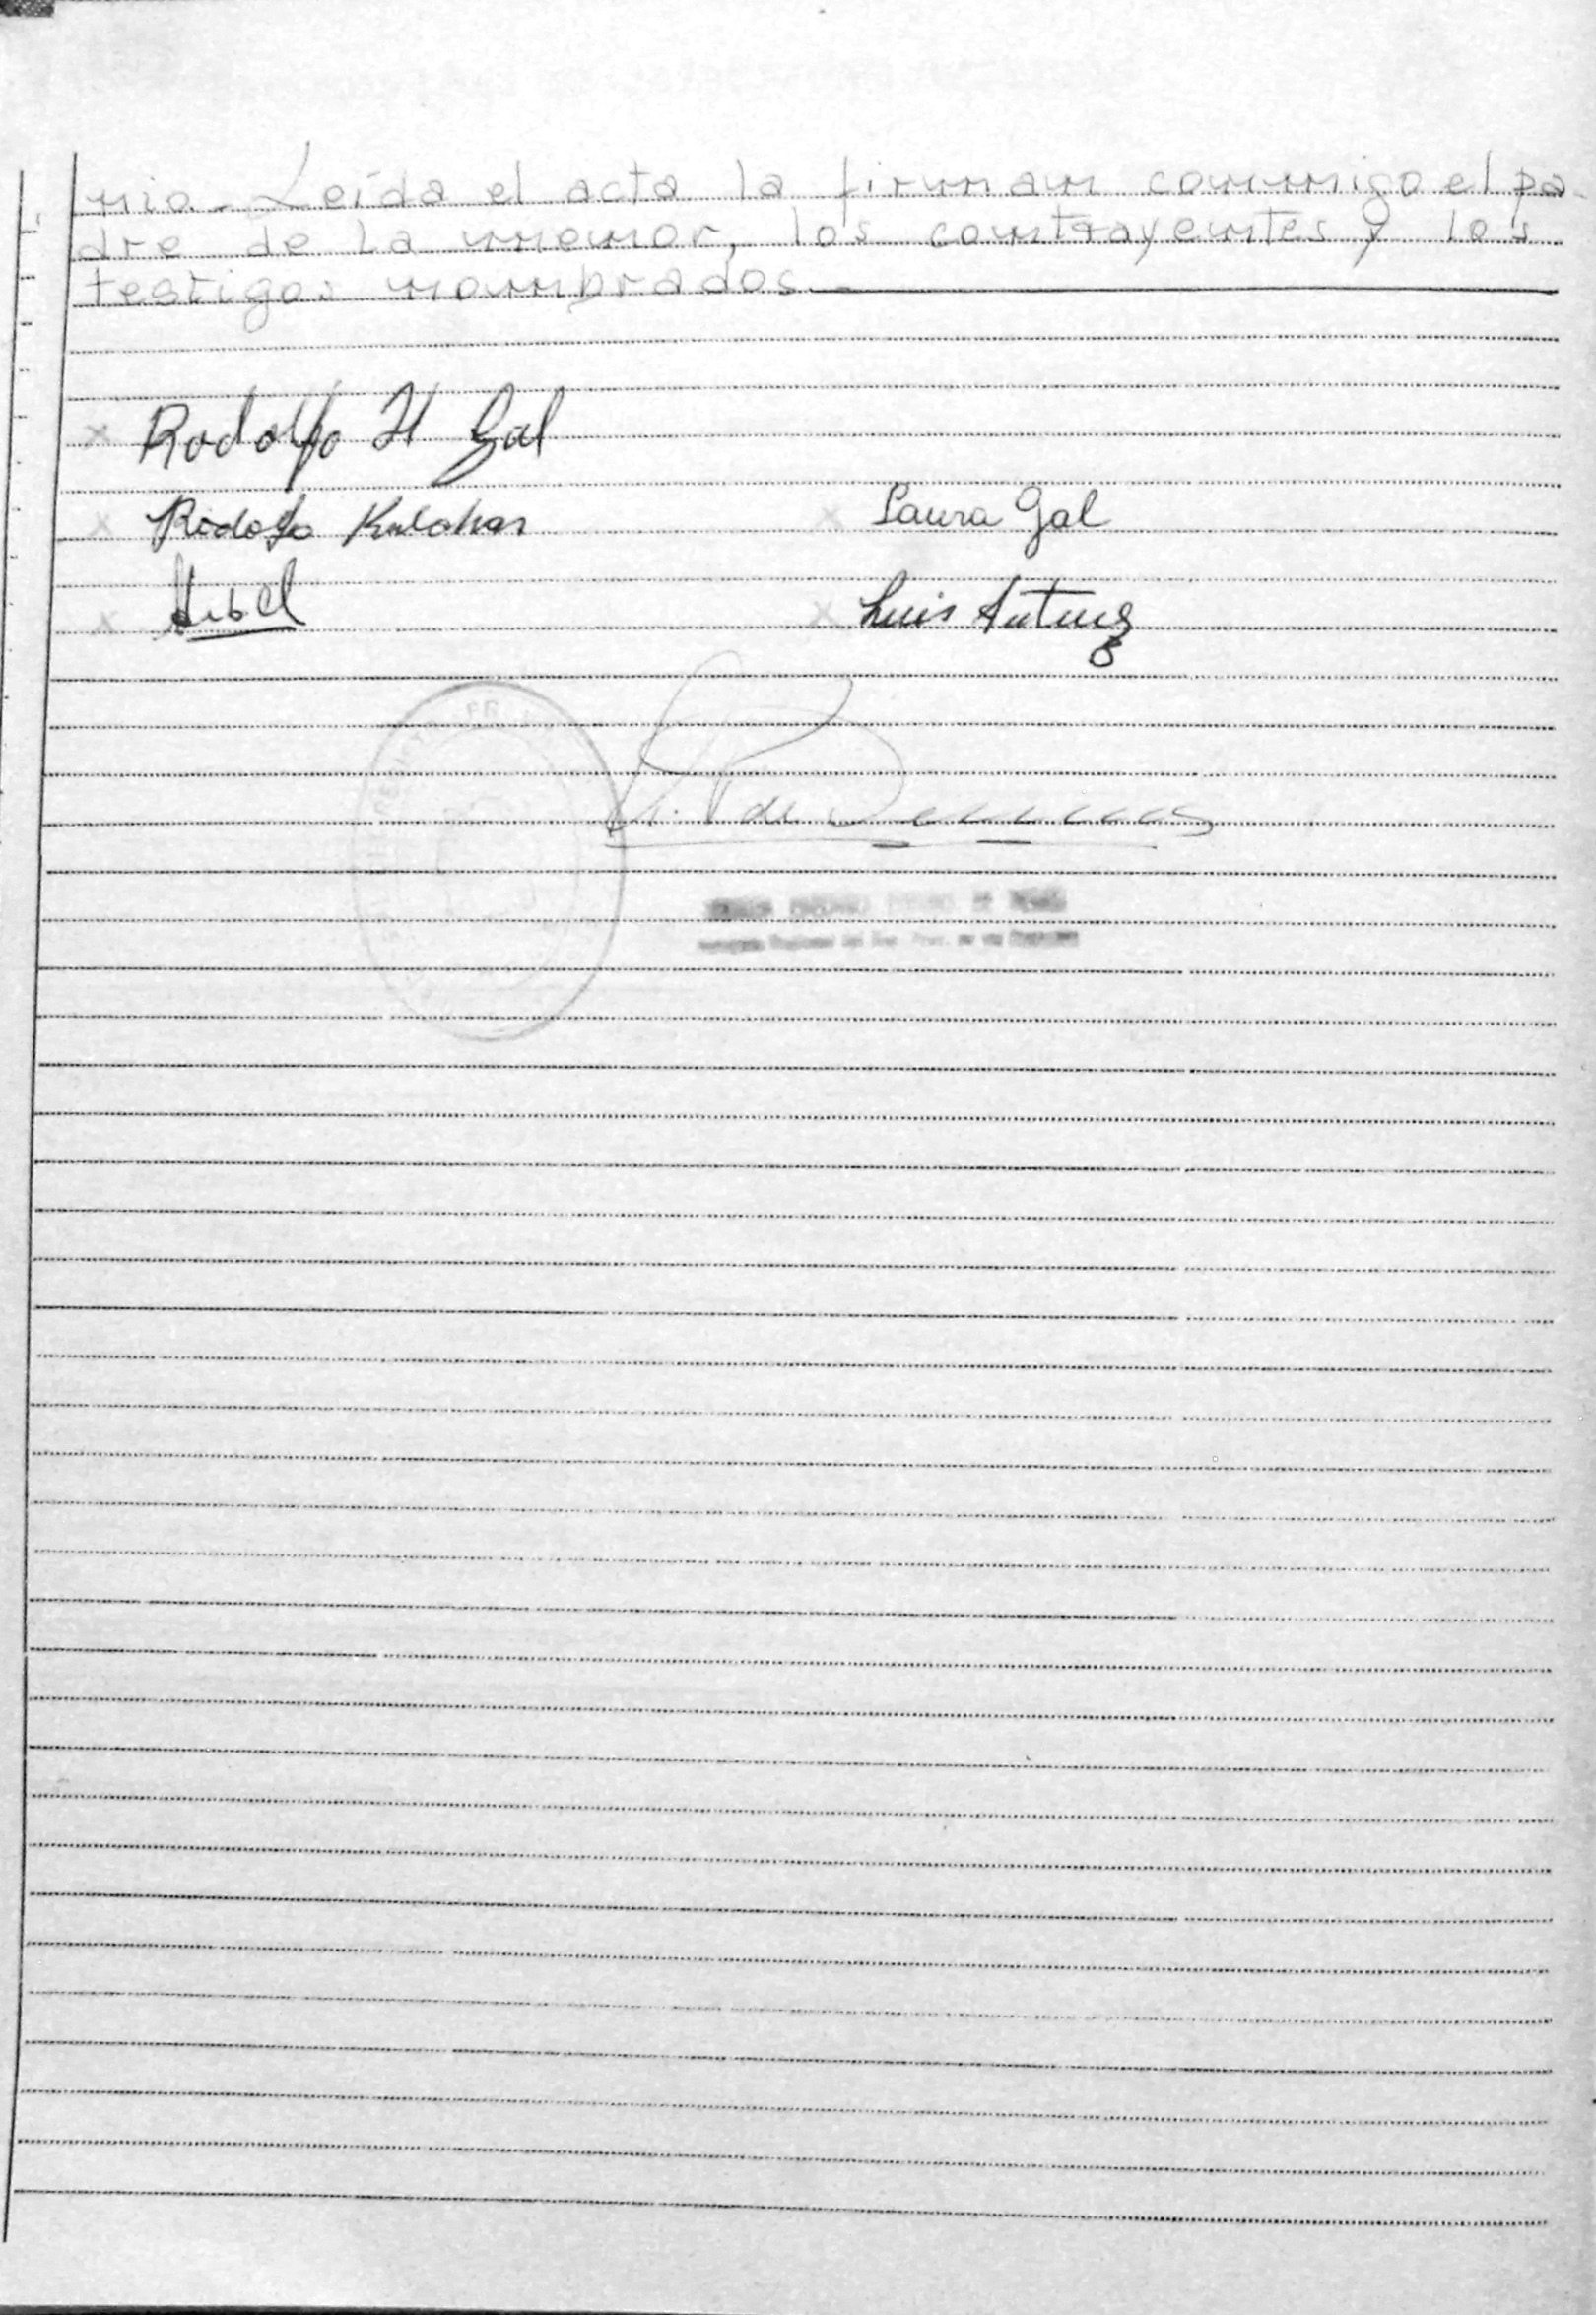 nio. Leída el acta la firman conmigo el pa-
dre de la menor, los contrayentes y los
testigos nombrados
x Rodolfo H Gal
x Rodolfo x Laura Gal
x x Luis